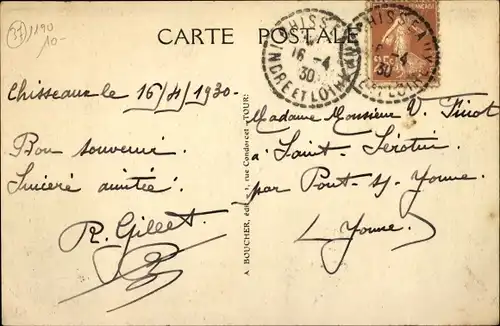 37 1190
10-
CARTE POSTALE
CHISSEAUX
16-4
30
INDRE ET LOIRE
CHISSEAUX
6-4
30
ET LOIRE
25c
Chisseaux le 16/4/1930-
Bon souvenir.
Sincère amitié.
R. Gillet.
A. BOUCHER, édit - 1, rue Condorcet - TOURS
Madame Monsieur V. Tinot
à Saint-Sérotin
par Pont-s-Yonne
Yonne.